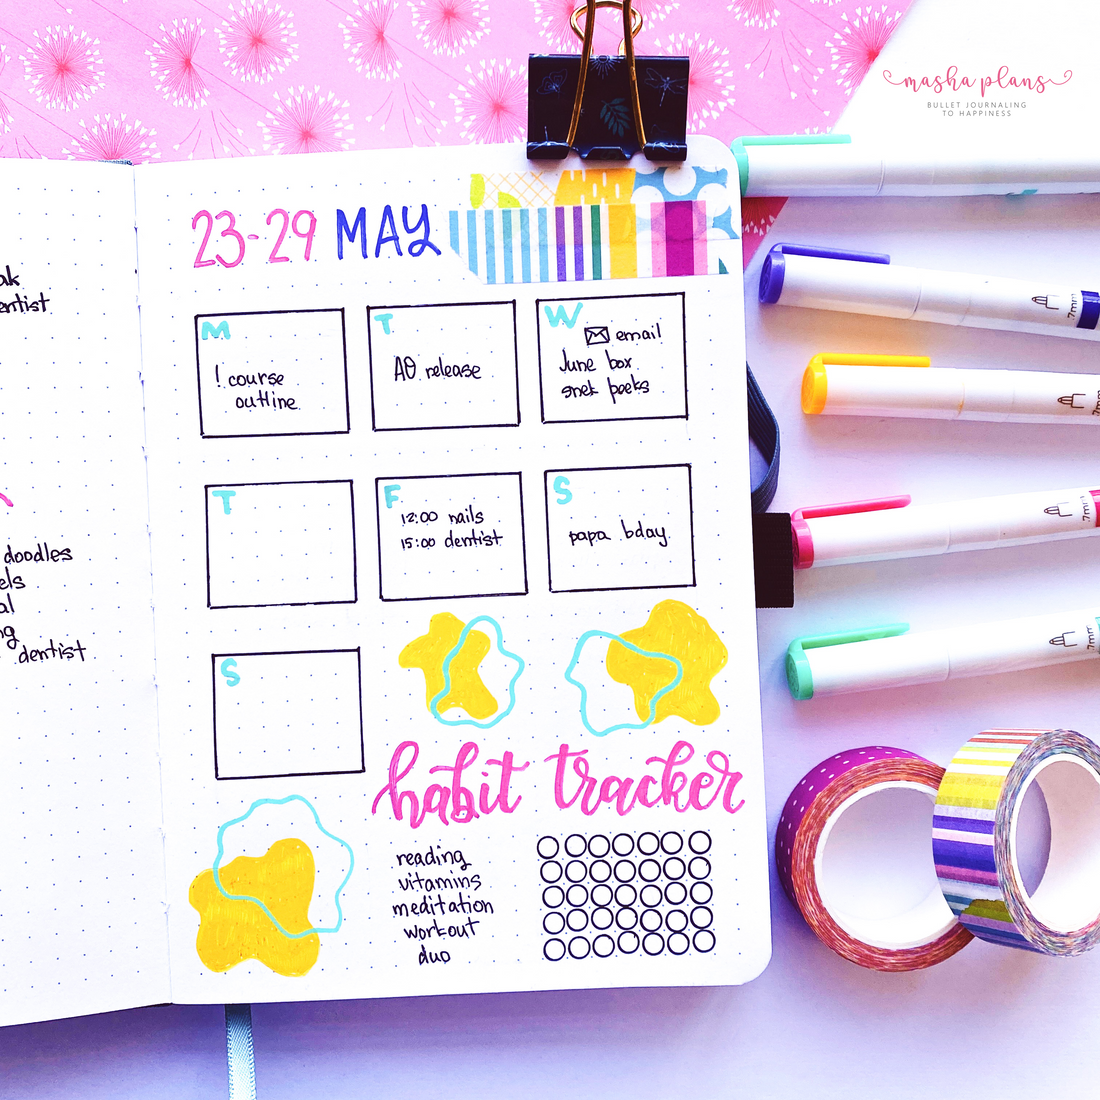 masha plans
BULLET JOURNALING
TO HAPPINESS
entist
doodles
dentist
23-29 MAY
M
! course
outline
T
AO release
W
email
June box
snek peeks
T
F
12:00 nails
15:00 dentist
S
papa bday
S
habit tracker
reading
vitamins
meditation
workout
duo
.7mm
.7mm
.7mm
.7mm